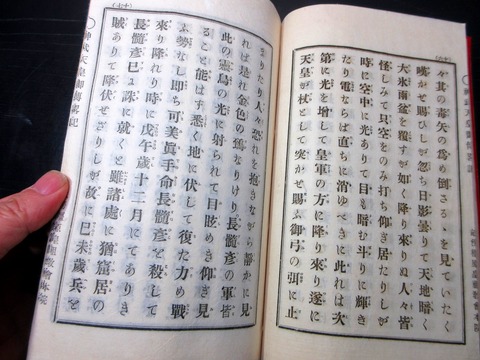 々其の毒矢の爲め倒さるゝを見ていたく
嘆かせ賜ひしが忽ち日影曇りて天地暗く
大氷雨盆を覆すが如く降り來りぬ人々皆
怪しみて只空をのみ打ち仰ぎ居たりしが
時に空中に光ありて目も暗む斗りに輝き
たり電ならば直ちに消ゆべきに此れは次
第に光を增して皇軍の方に降り來り遂に
天皇が杖として突かせ賜ふ御弓の弭に止
まりたり人々恐れを抱きながら靜かに見
れば是れ金色の鳶なりけり長髓彥の軍皆
此の靈鳥の光に射られて目眩めき仰ぎ見
ること能はず悉く地に伏して復た力め戰
ふ勢なし即ち可美眞手命長髓彥を殺して
來り降れり時に戊午歲十二月にてありき
長髓彥已に誅に就くと雖諸處に猶窟居の
賊ありて降伏せざりしが故に己未歲兵を
神武天皇御